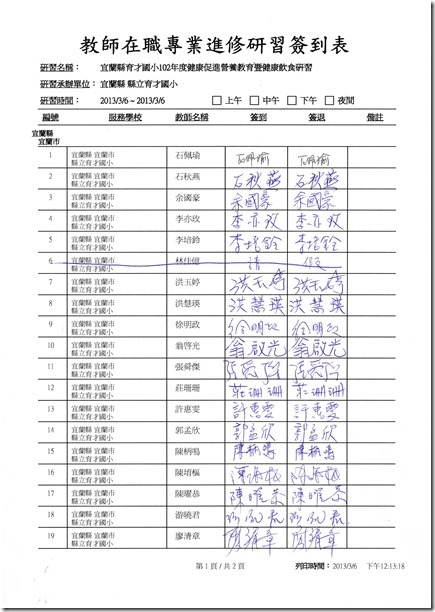 教師在職專業進修研習簽到表
研習名稱： 宜蘭縣育才國小102年度健康促進營養教育暨健康飲食研習
研習承辦單位： 宜蘭縣 縣立育才國小
研習時間： 2013/3/6 ~ 2013/3/6 □上午 □中午 □下午 □夜間
編號 服務學校 教師名稱 簽到 簽退 備註
宜蘭縣
宜蘭市
1 宜蘭縣 宜蘭市 石佩瑜 石珮瑜 石珮瑜
縣立育才國小
2 宜蘭縣 宜蘭市 石秋燕 石秋燕 石秋燕
縣立育才國小
3 宜蘭縣 宜蘭市 余國豪 余國豪 余國豪
縣立育才國小
4 宜蘭縣 宜蘭市 李亦玫 李亦玫 李亦玫
縣立育才國小
5 宜蘭縣 宜蘭市 李培鈴 李培鈴 李培鈴
縣立育才國小
6 宜蘭縣 宜蘭市 林佳億 請 假
縣立育才國小
7 宜蘭縣 宜蘭市 洪玉婷 洪玉婷 洪玉婷
縣立育才國小
8 宜蘭縣 宜蘭市 洪慧瑛 洪慧瑛 洪慧瑛
縣立育才國小
9 宜蘭縣 宜蘭市 徐明政 徐明政 徐明政
縣立育才國小
10 宜蘭縣 宜蘭市 翁啓光 翁啟光 翁啟光
縣立育才國小
11 宜蘭縣 宜蘭市 張舜傑
縣立育才國小
12 宜蘭縣 宜蘭市 莊珊珊 莊珊珊 莊珊珊
縣立育才國小
13 宜蘭縣 宜蘭市 許惠雯 許惠雯 許惠雯
縣立育才國小
14 宜蘭縣 宜蘭市 郭孟欣 郭孟欣 郭孟欣
縣立育才國小
15 宜蘭縣 宜蘭市 陳柄鳴
縣立育才國小
16 宜蘭縣 宜蘭市 陳堉樞
縣立育才國小
17 宜蘭縣 宜蘭市 陳曜恭 陳曜恭 陳曜恭
縣立育才國小
18 宜蘭縣 宜蘭市 游曉君
縣立育才國小
19 宜蘭縣 宜蘭市 廖清章 廖清章 廖清章
縣立育才國小
第 1 頁 / 共 2 頁 列印時間：2013/3/6 下午12:13:18